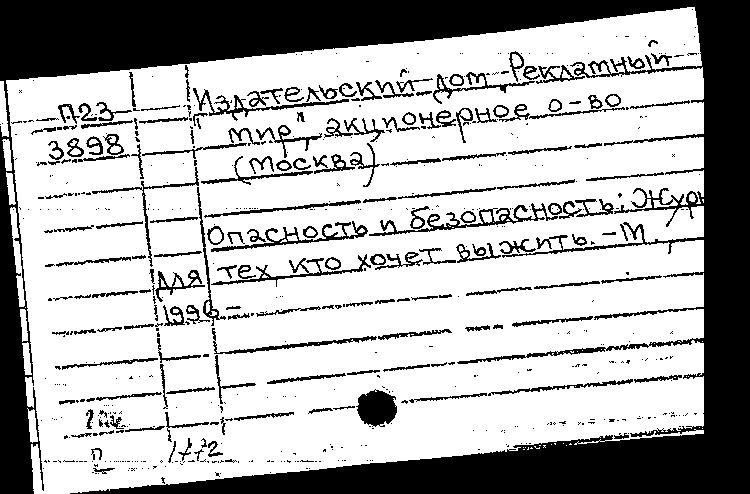 П23
3898
Издательский дом "Рекламный
мир", акционерное о-во
(Москва)
Опасность и безопасность: Журн
для тех кто хочет выжить. - М.,
1996 -